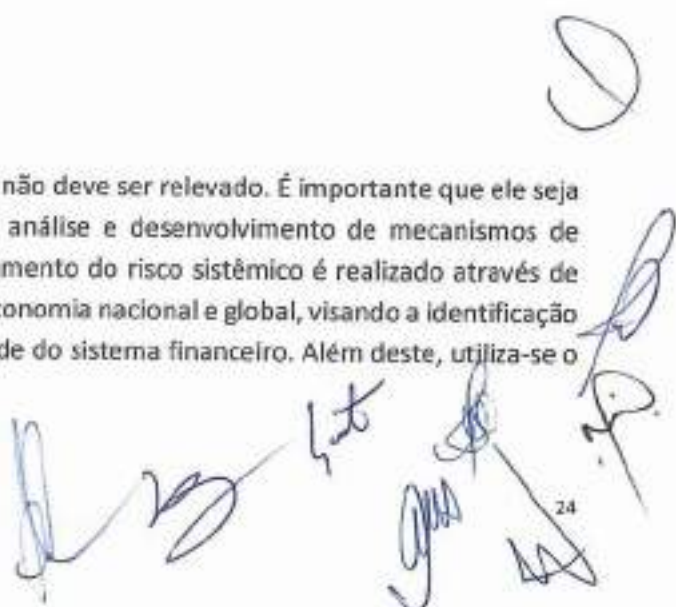 não deve ser relevado. É importante que ele seja
análise e desenvolvimento de mecanismos de
mento do risco sistêmico é realizado através de
conomia nacional e global, visando a identificação
de do sistema financeiro. Além deste, utiliza-se o
24